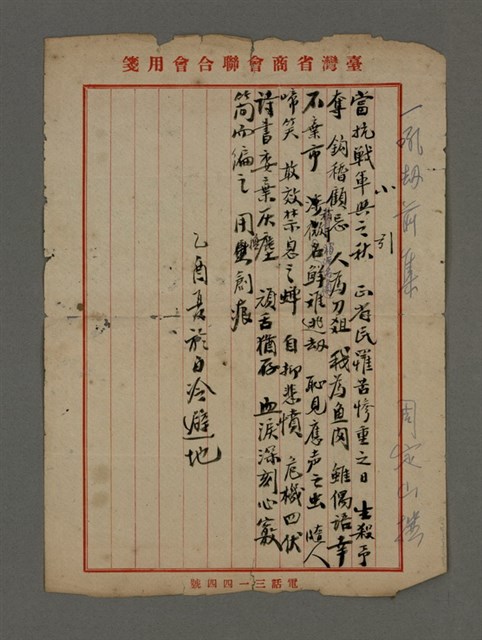 臺灣省商會聯合會用箋
一吼劫前集 周定山撰
小引
當抗戰軍興之秋 正省民罹苦慘重之日 生殺予
奪 鈎稽顧忌 人為刀俎 我為魚肉 雖偶語幸
不棄市 微名鮮誰逃劫 恥見應声之虫 隨人
啼笑 敢效禁息之蟬 自抑悲憤 危機四伏
詩書委棄灰塵 頑舌猶存 血淚深刻心竅
簡而編之 用 創痕
乙酉夏於白冷避地
電話三一四四號